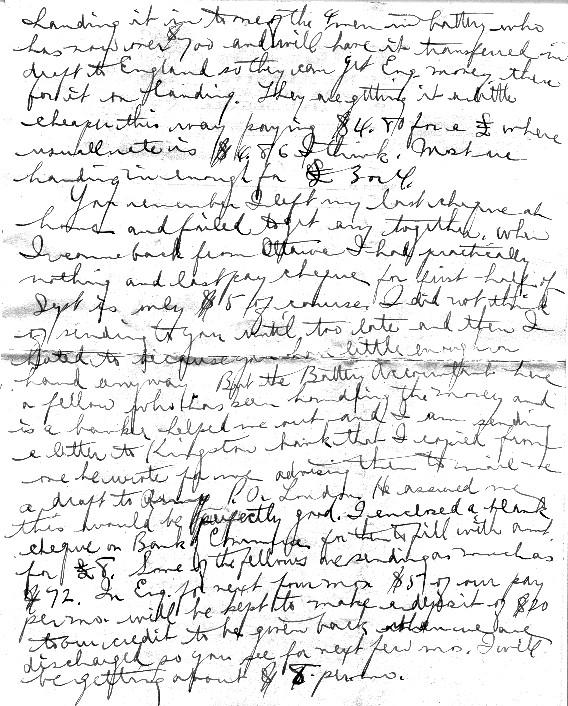 handing it in to one of the 4 men in battery who
has now over $700 and will have it transferred in
draft to England so they can get Eng. money there
for it on landing. They are getting it a little
cheaper this way paying $4.80 for a £ where
usual rate is $4.86 I think. Most are
handing in enough for £ 3 or 4.
You remember I left my last cheque at
home and failed to get any together. When
I came back from Ottawa I had practically
nothing and last pay cheque for first half of
Sept is only $15 of course. I did not think
of sending to you until too late and then I
hated to because you had little enough on
hand anyway. But the Battery Accountant have
a fellow who has been handling the money and
is a banker helped me out and I am sending
a letter to Kingston bank that I copied from
one he wrote for me advising them to mail me
a draft to Army P.O. London. He assured me
this would be perfectly good. I enclosed a blank
cheque on Bank of Commerce for them to fill with amt.
for £8. Some of the fellows are sending as much as
$72. In Eng. for next four mos $5 of our pay
per mo. will be kept to make a deposit of $20
to our credit to be given back when we are
discharged so you see for next few mos. I will
be getting about $8. per mo.